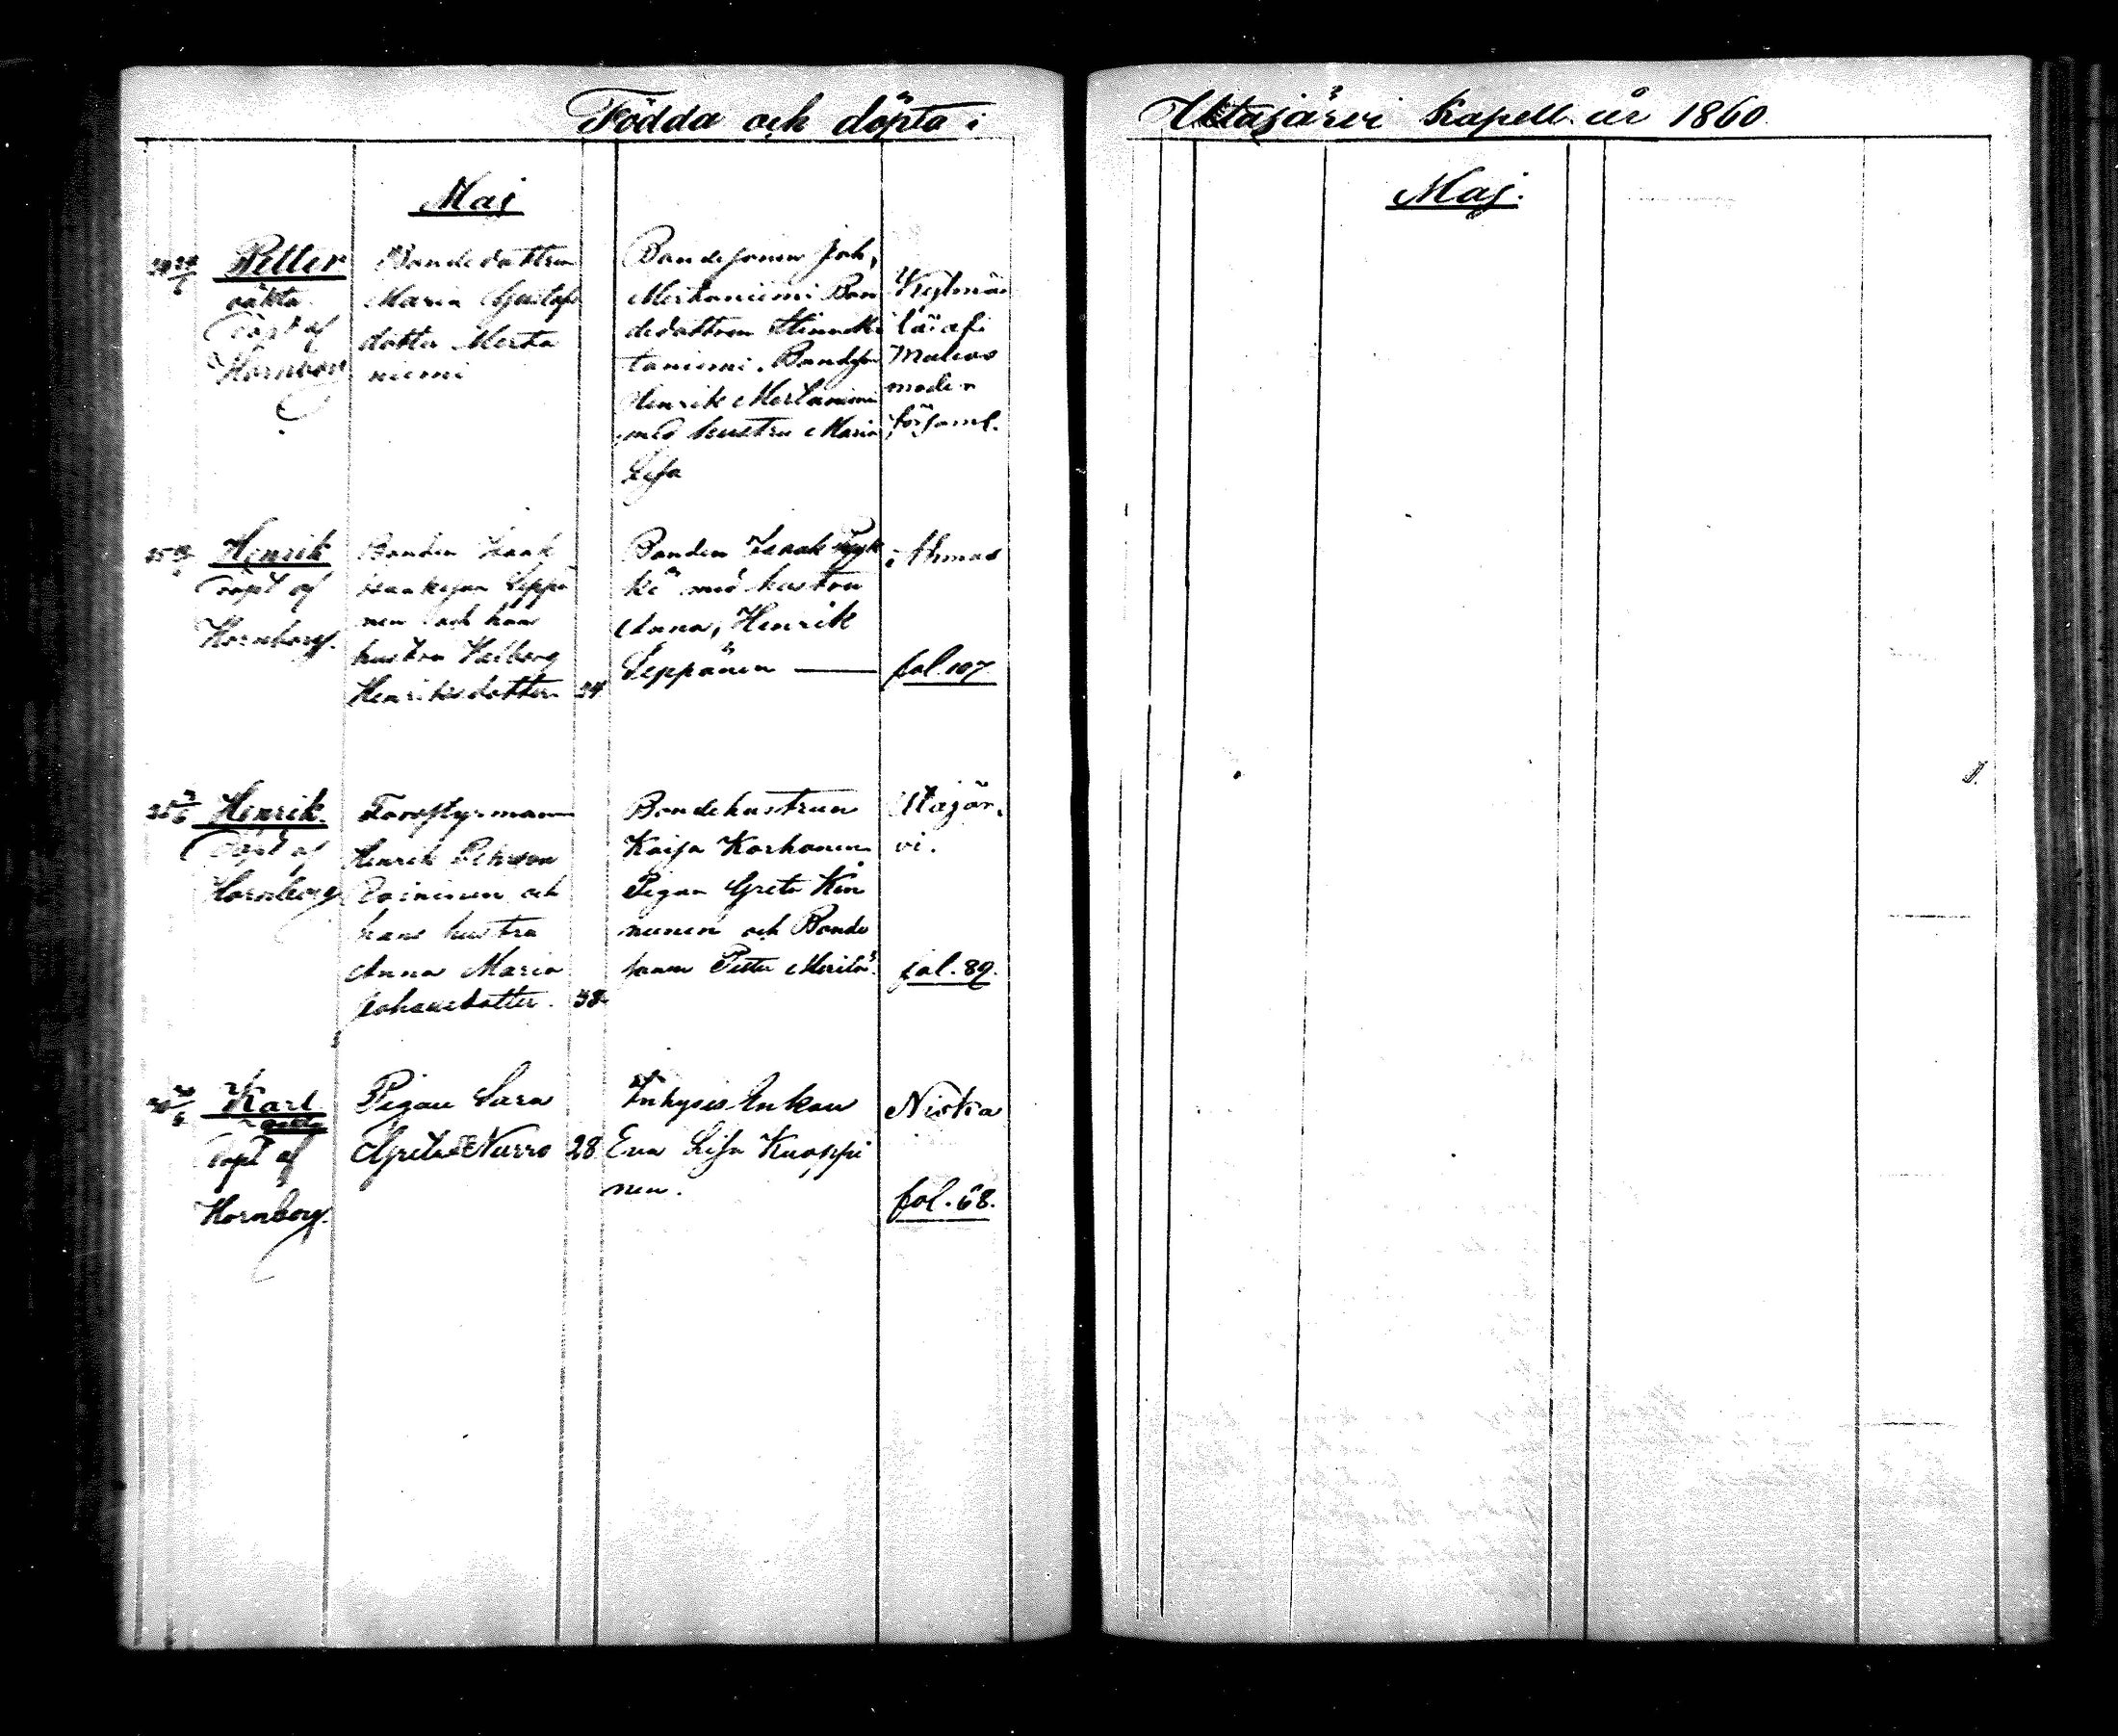 Födda och döpta i Utajärvi Kapell år 1860.
Maj
Petter
oäkta
Döpt af
Hornborg
Bondedottren
Maria Gustafs
dotter Merta
niemi
Bondesonen Joh,
Mertaniemi Bon
dedottren
taniemi. Bondeson
Henrik Mertaniemi
med hustru Maria
Lisa
Kylmä
lä i afi
Muhos
moder
församl.
Henrik
Döpt af
Hornborg.
Bonden Isaak
Isaaksson Seppä
nen och hans
hustru Walborg
Henriksdotter 34
Bonden Isaak
kö med hustru
Anna, Henrik
Seppänen
i Ahmas
fol. 107.
Henrik.
Döpt af
Hornborg
Forsstyrman
Henrik Pehrson
och
hans hustru
Anna Maria
Johansdotter. 38
Bondehustrun
Kaisa Karhonen
Pigan Greta Kin
nunen och Bonde
sonen Petter Merilä.
Utajär
vi.
fol. 89.
Karl
oäkta
Döpt af
Hornborg.
Pigan Sara
Greta Nurro 28
Inhyses Enkan
Eva Lisa Knoppi
nen.
Niska
fol. 68.
Maj.